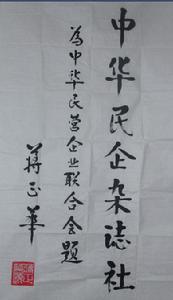 中华民企杂志社
为中华民营企业联合会题
蒋正华